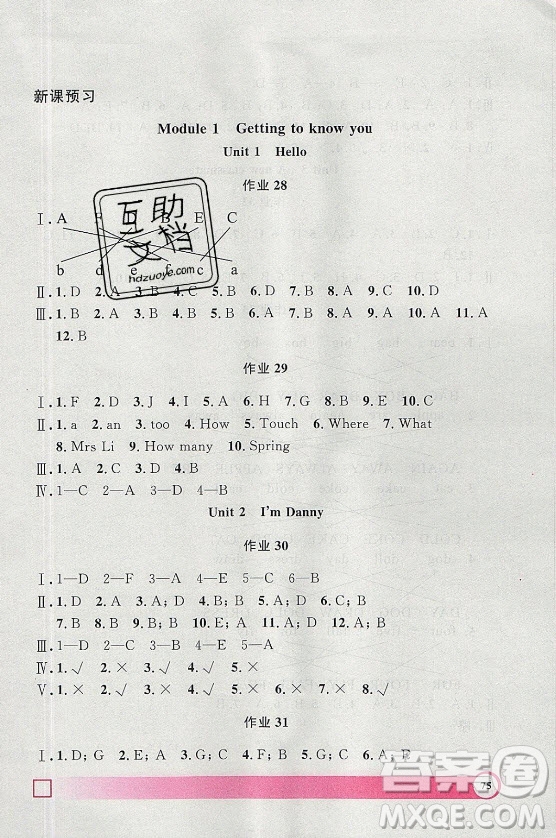 新课预习
Module 1 Getting to know you
Unit 1 Hello
作业 28
Ⅰ. A B E C
互助
文档
hdzuoye.com
b d e f c a
Ⅱ. 1. D 2. A 3. B 4. C 5. B 6. D 7. B 8. A 9. C 10. D
Ⅲ. 1. B 2. A 3. C 4. A 5. C 6. B 7. A 8. B 9. C 10. A 11. A
12. B
作业 29
Ⅰ. 1. F 2. D 3. J 4. I 5. A 6. C 7. H 8. G 9. E 10. B
Ⅱ. 1. a 2. an 3. too 4. How 5. Touch 6. Where 7. What
8. Mrs Li 9. How many 10. Spring
Ⅲ. 1. A 2. C 3. A 4. B 5. C
Ⅳ. 1—C 2—D 3—B 4—A
Unit 2 I'm Danny
作业 30
Ⅰ. 1—D 2—C 3—A 4—B
Ⅱ. 1. A 2. A 3. A 4. B 5. B 6. C
7. B 8. B 9. C 10. A
Ⅲ. 1—D 2—C 3—B 4—E 5—A
Ⅳ. 1. √ 2. × 3. √ 4. × 5. √
Ⅴ. 1. × 2. × 3. √ 4. √ 5. ×
作业 31
Ⅰ. 1. D; G 2. E; A 3. B; G 4. C; B 5. A; F
75
答案圈
MXQE.COM